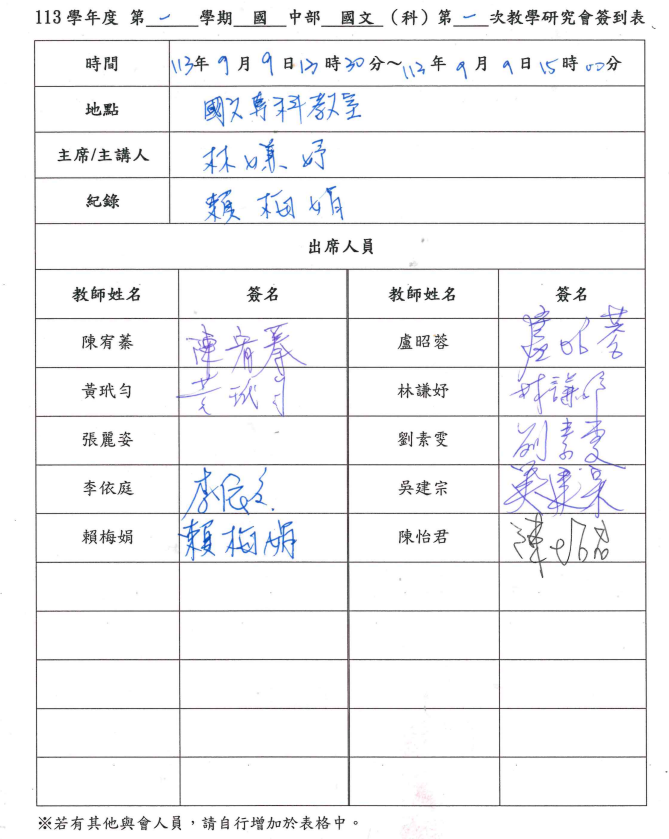 113學年度 第一學期 國 中部 國文（科）第一次教學研究會簽到表
時間 113年9月9日13時30分～113年9月9日15時00分
地點 國文專科教室
主席/主講人 林謙妤
紀錄 賴梅娟
出席人員
教師姓名 簽名 教師姓名 簽名
陳宥蓁 陳宥蓁 盧昭蓉 盧昭蓉
黃玳勻 黃玳勻 林謙妤 林謙妤
張麗姿 劉素雯 劉素雯
李依庭 李依庭 吳建宗 吳建宗
賴梅娟 賴梅娟 陳怡君 陳怡君
※若有其他與會人員，請自行增加於表格中。